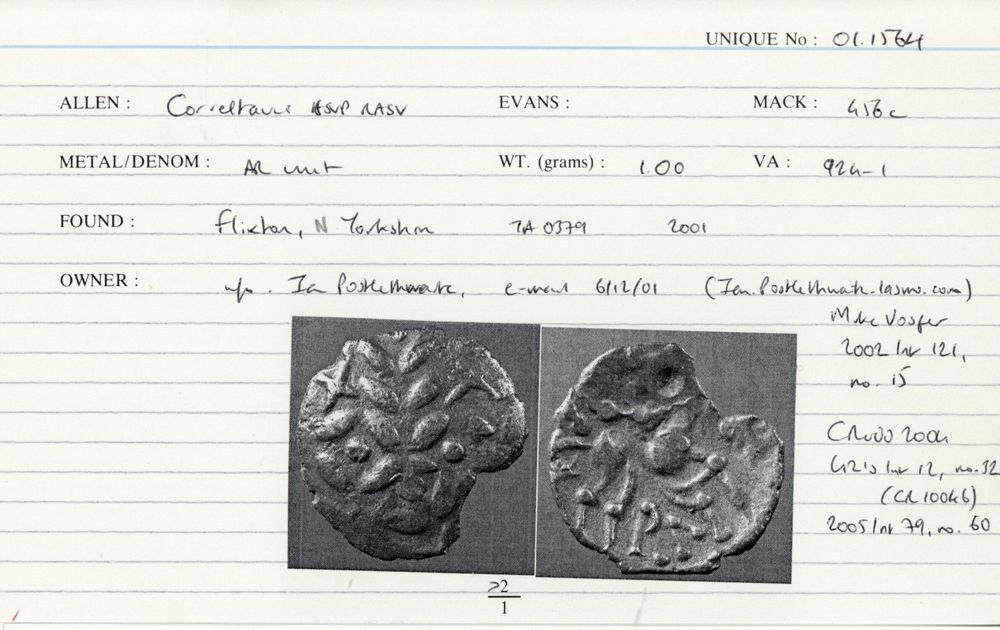 UNIQUE No : 01.1564
ALLEN : Corieltauvi ASVP RASV EVANS : MACK : 456c
METAL/DENOM : AR unit WT. (grams) : 1.00 VA : 924-1
FOUND : Flixton, N Yorkshire TA 0379 2001
OWNER : Ian Postlethwaite, e-mail 6/12/01 (Ian.Postlethwaite-lasmo.com)
Mike Vosper
2002 list 121,
no. 15
CRudd 2004
list 12, no. 32
(CR 10046)
2005 list 79, no. 60
>2
1